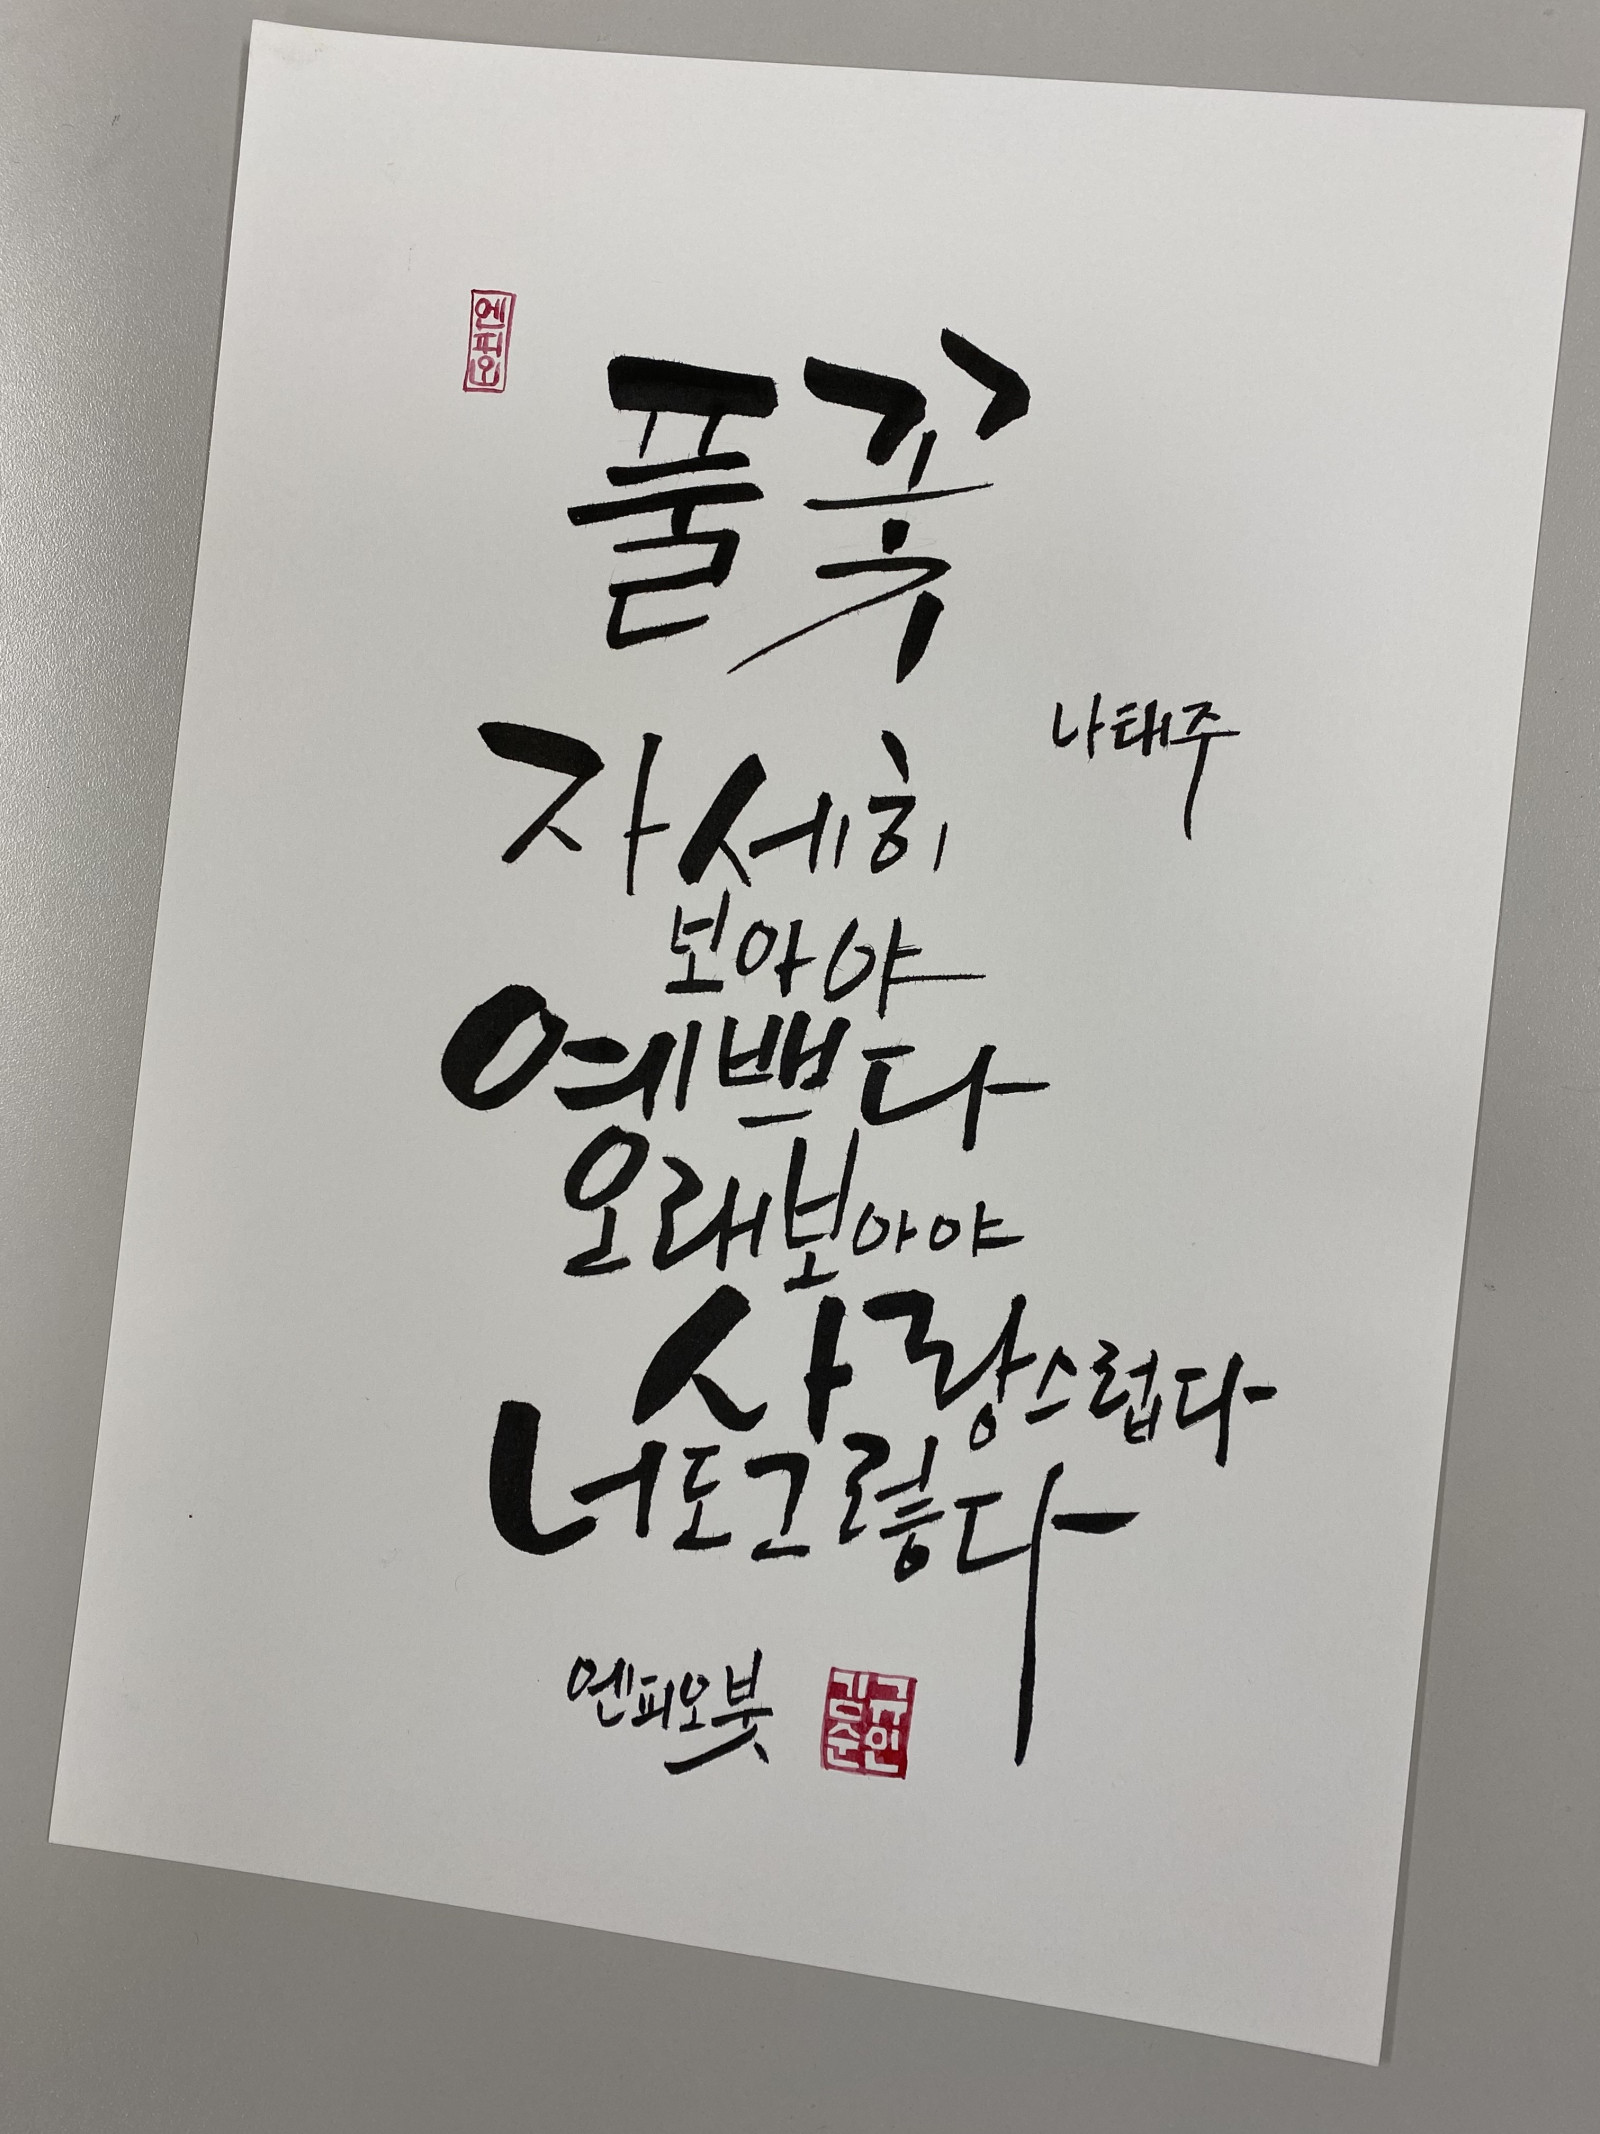 엔피오
풀꽃
나태주
자세히
보아야
예쁘다
오래보아야
사랑스럽다
너도그렇다
엔피오붓
김규
순인